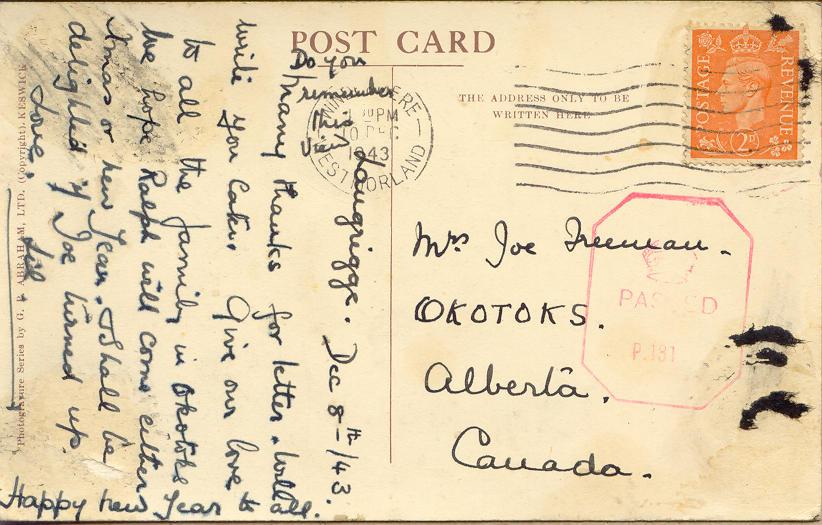 POST CARD
THE ADDRESS ONLY TO BE
WRITTEN HERE
POSTAGE
REVENUE
2D
PM
10 DEC
1943
WESTMORLAND
PASSED
P.131
Mrs Joe Freeman.
OKOTOKS.
Alberta.
Canada.
Do you
remember
this
View
Langrigge. Dec 8th/43.
Many thanks for letter & will
write you later. Give our love
to all the family in Okotoks
we hope Ralph will come either
Xmas or New Year. I shall be
delighted if Joe turned up.
Love,
Happy New Year to all.
Photogravure Series by G. P. ABRAHAM, LTD. (Copyright), KESWICK